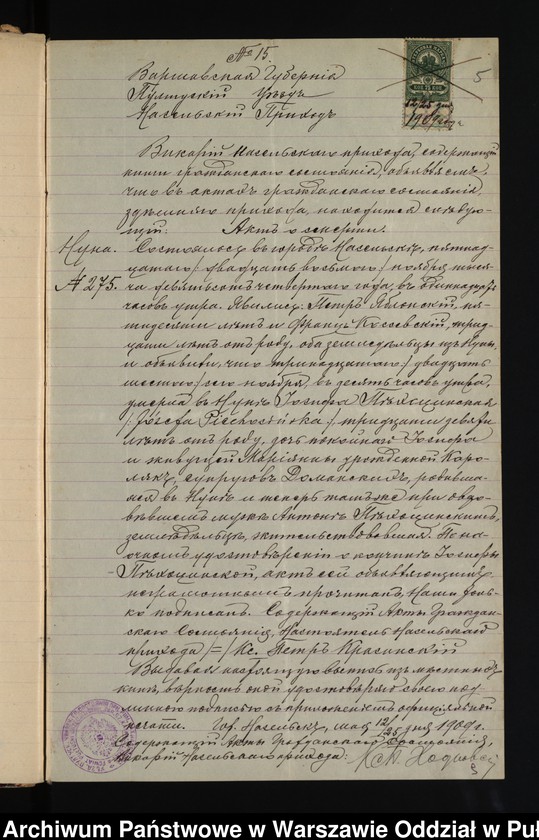 № 15.
5
Варшавская Губернія
Пултускій Уѣздъ
Насельскій Приходъ
12/25 мая
1909 года
Викарій Насельскаго прихода, содержащій
книги гражданскаго состоянія, объявляетъ,
что в актахъ гражданскаго состоянія
здѣшняго прихода, находится слѣдую-
щій: Актъ о смерти.
Нуна. Состоялось въ городѣ Насельскѣ, пятнад-
цатаго / двадцать восьмаго / ноября тыся-
№ 275. ча девятьсотъ четвертаго года, въ одиннадцать
часовъ утра. Явились: Петръ Яблонскій, пя-
тидесяти лѣтъ и Францъ Косевскій, трид-
цати лѣтъ отъ роду, оба земледѣльцы изъ Нуны,
и объявили, что тринадцатаго / двадцать
шестого / сего ноября, въ десять часовъ утра,
умерла въ Нунѣ Іозефа Пѣхоцинская
/Józefa Piechocińska/ тридцати девяти
лѣтъ отъ роду, дочь покойнаго Іосифа
и живущей Маріянны урожденной Коро-
лякъ, супруговъ Доманскихъ, родивша-
яся въ Нунѣ и теперь тамъ же при овдо-
вѣвшемъ мужѣ Антонѣ Пѣхоцинскимъ,
земледѣльцѣ, жительствовавшая. По на-
очномъ удостовѣреніи о кончинѣ Іозефы
Пѣхоцинской, актъ сей объявляющимъ
неграмотнымъ прочитанъ, Нами толь-
ко подписанъ. Содержащій Акты Граждан-
скаго Состоянія, Настоятель Насельскаго
прихода /=/ Кс. Петръ Красинскій
Выдавая настоящую выпись изъ мѣстныхъ
книгъ, вѣрность оной удостовѣряю своею под-
писью съ приложеніемъ официальной
печати. Гор. Насельскъ, мая 12/25 дня 1909 г.
Содержащій Акты Гражданскаго Состоянія,
Викарій Насельскаго прихода:
Archiwum Państwowe w Warszawie Oddział w Puł